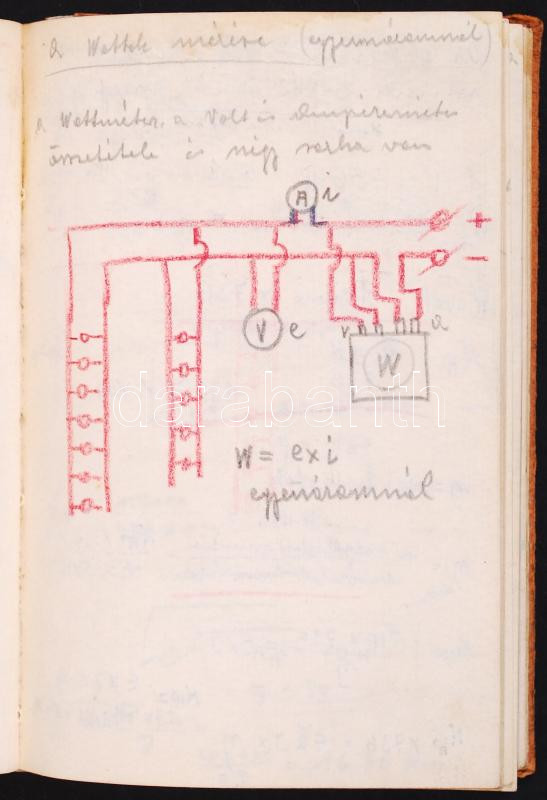 a Wattok mérése (egyenáramnál)
a Wattméter, a Volt és Ampèreméter
összetétele és négy sarka van
A i
+
−
V e
v a
W
darabanth
W = e×i
egyenáramnál